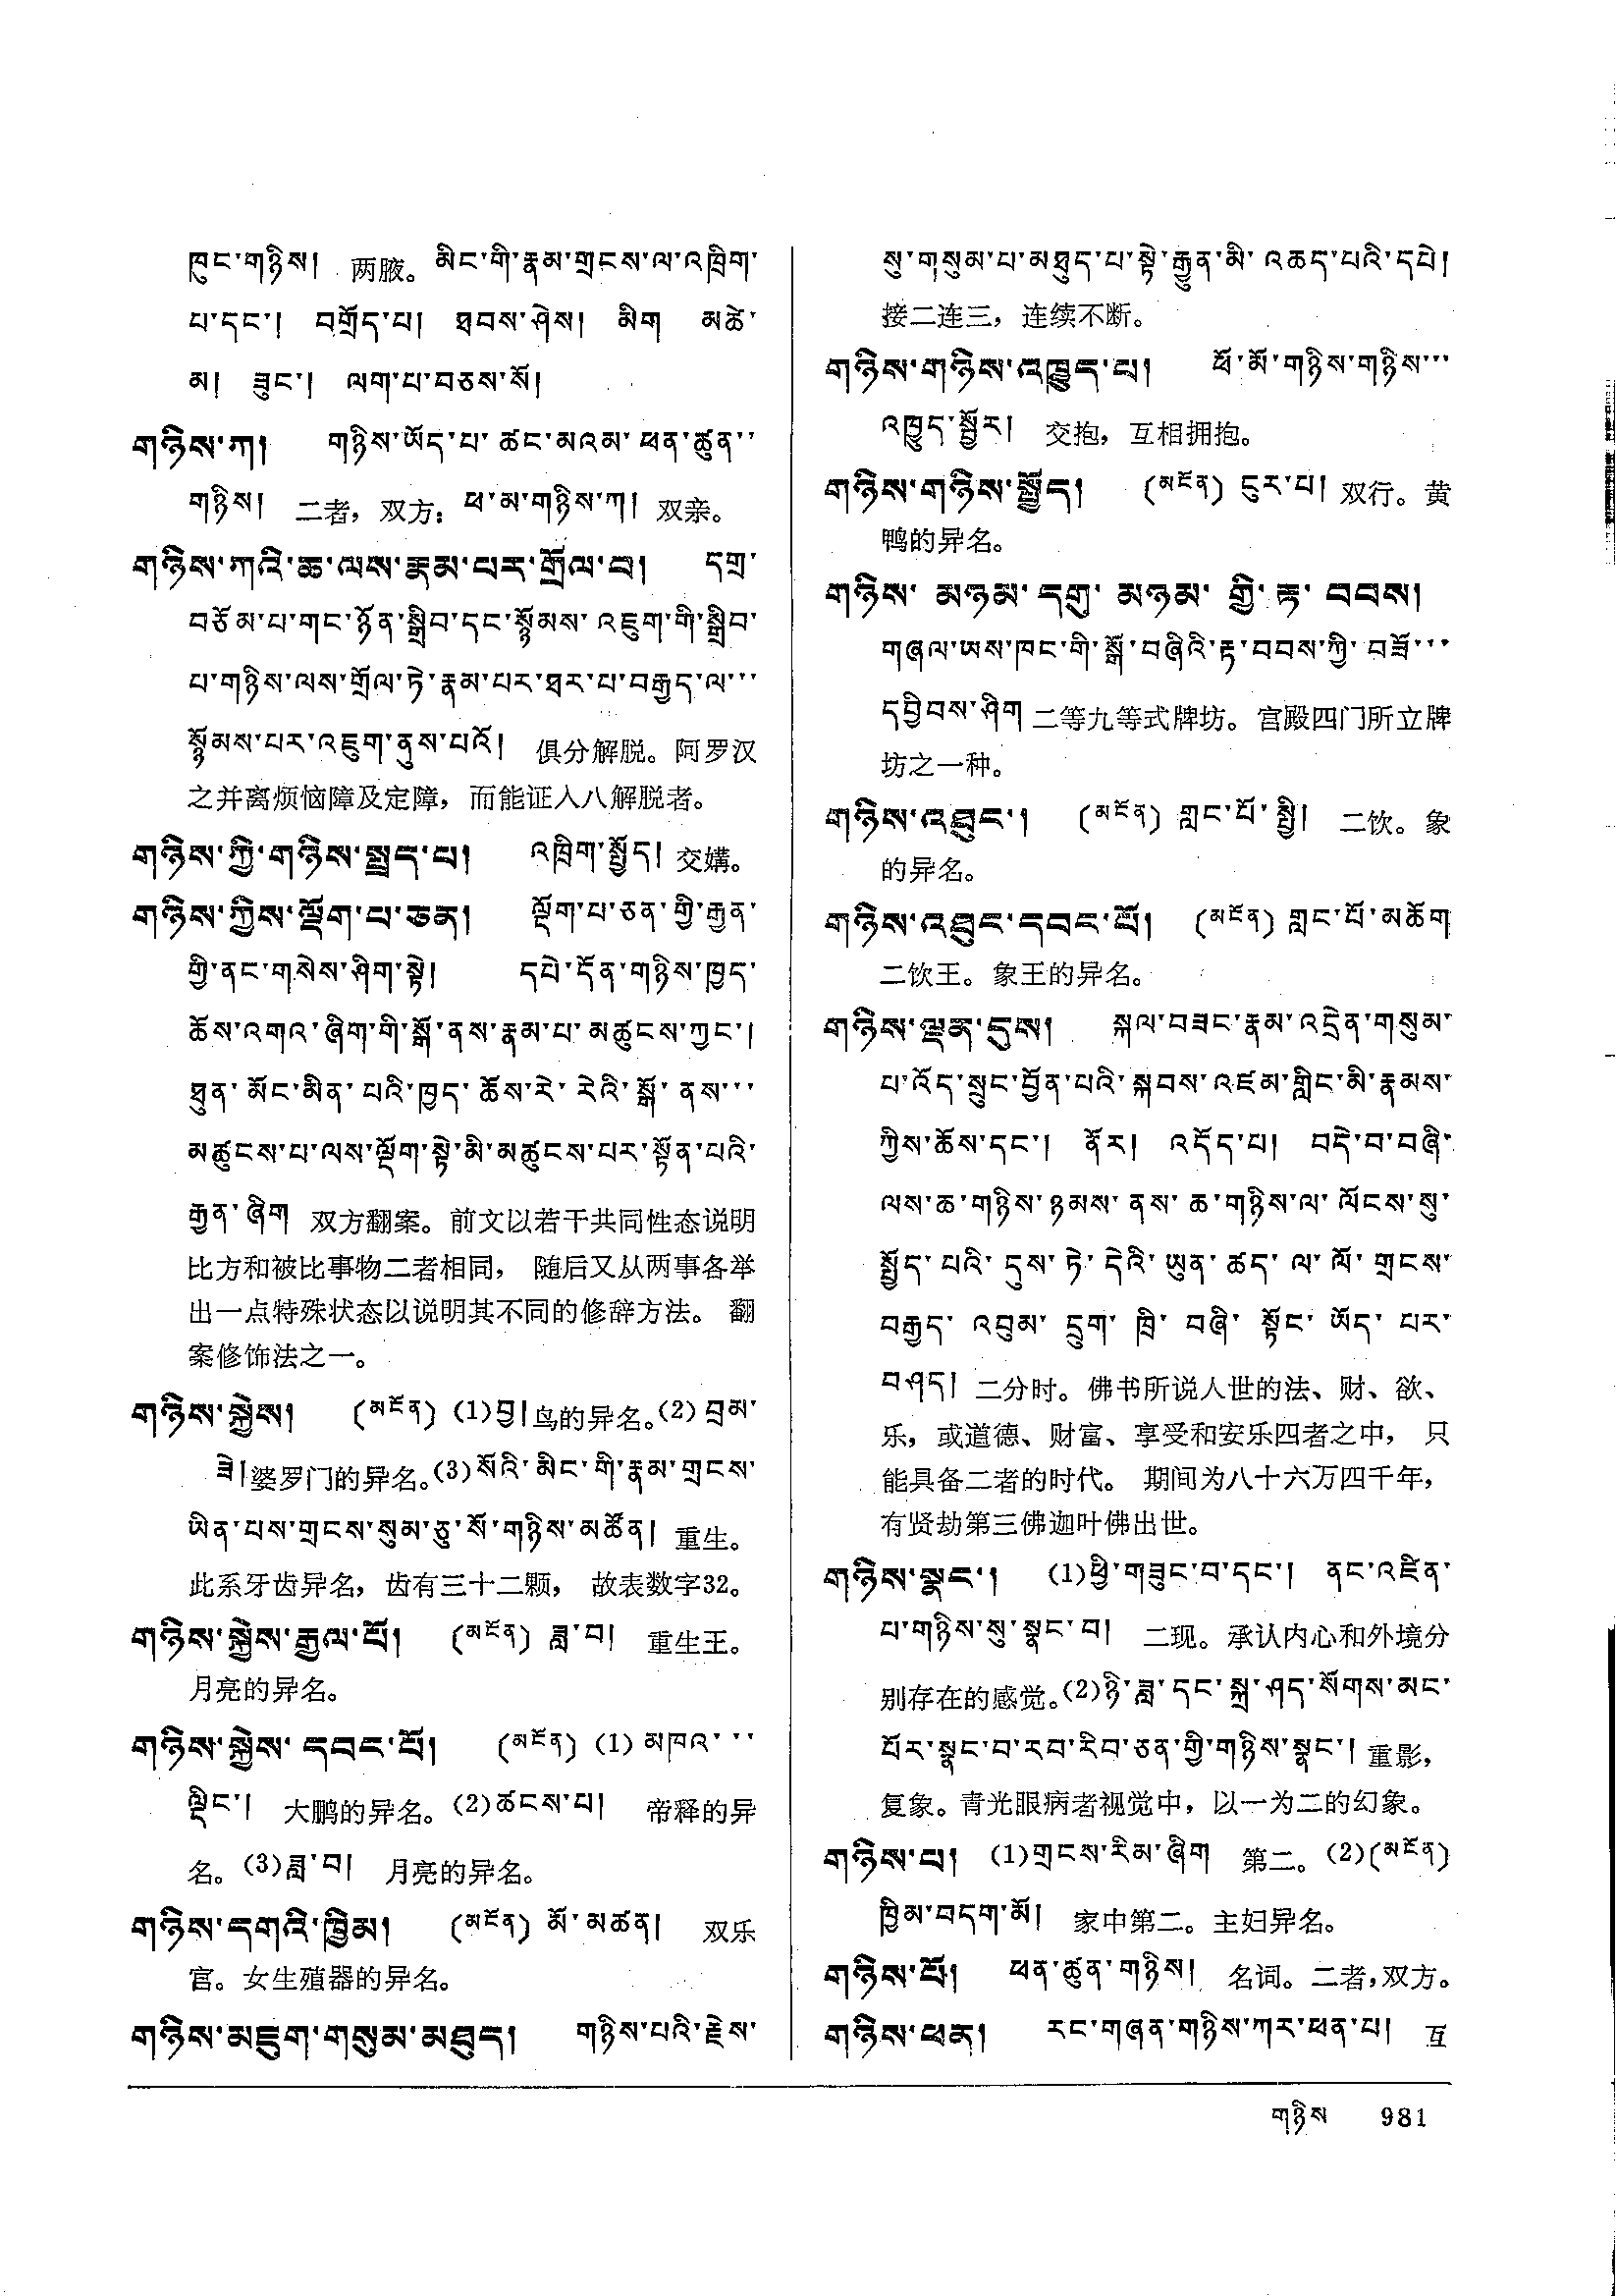 ཁུང་གཉིས། 两腋。མིང་གི་རྣམ་གྲངས་ལ་འཁྲིག་
པ་དང་། བགྲོད་པ། ཐབས་ཤེས། མིག མཚེ་
མ། ཟུང་། ལག་པ་བཅས་སོ།
གཉིས་ཀ། གཉིས་ཡོད་པ་ཚང་མའམ་ཕན་ཚུན་་
གཉིས། 二者，双方：ཕ་མ་གཉིས་ཀ། 双亲。
གཉིས་ཀའི་ཆ་ལས་རྣམ་པར་གྲོལ་བ། དགྲ་
བཅོམ་པ་གང་ཉོན་སྒྲིབ་དང་སྙོམས་འཇུག་གི་སྒྲིབ་
པ་གཉིས་ལས་གྲོལ་ཏེ་རྣམ་པར་ཐར་པ་བརྒྱད་ལ་་་
སྙོམས་པར་འཇུག་ནུས་པའོ། 俱分解脱。阿罗汉
之并离烦恼障及定障，而能证入八解脱者。
གཉིས་ཀྱི་གཉིས་སྤྲད་པ། འཁྲིག་སྤྱོད། 交媾。
གཉིས་ཀྱིས་ལྡོག་པ་ཅན། ལྡོག་པ་ཅན་གྱི་རྒྱན་
གྱི་ནང་གསེས་ཤིག་སྟེ། དཔེ་དོན་གཉིས་ཁྱད་
ཆོས་འགའ་ཞིག་གི་སྒོ་ནས་རྣམ་པ་མཚུངས་ཀྱང་།
ཐུན་མོང་མིན་པའི་ཁྱད་ཆོས་རེ་རེའི་སྒོ་ནས་་་
མཚུངས་པ་ལས་ལྡོག་སྟེ་མི་མཚུངས་པར་སྟོན་པའི་
རྒྱན་ཞིག 双方翻案。前文以若干共同性态说明
比方和被比事物二者相同， 随后又从两事各举
出一点特殊状态以说明其不同的修辞方法。 翻
案修饰法之一。
གཉིས་སྐྱེས། (མངོན) (1)བྱ།鸟的异名。(2)བྲམ་
ཟེ།婆罗门的异名。(3)སོའི་མིང་གི་རྣམ་གྲངས་
ཡིན་པས་གྲངས་སུམ་ཅུ་སོ་གཉིས་མཚོན། 重生。
此系牙齿异名，齿有三十二颗， 故表数字32。
གཉིས་སྐྱེས་རྒྱལ་པོ། (མངོན) ཟླ་བ། 重生王。
月亮的异名。
གཉིས་སྐྱེས་དབང་པོ། (མངོན) (1) མཁའ་་་
ལྡིང་། 大鹏的异名。(2)ཚངས་པ། 帝释的异
名。(3)ཟླ་བ། 月亮的异名。
གཉིས་དགའི་ཁྱིམ། (མངོན) མོ་མཚན། 双乐
宫。女生殖器的异名。
གཉིས་མཇུག་གསུམ་མཐུད། གཉིས་པའི་རྗེས་
སུ་གསུམ་པ་མཐུད་པ་སྟེ་རྒྱུན་མི་འཆད་པའི་དཔེ།
接二连三，连续不断。
གཉིས་གཉིས་འཁྱུད་པ། ཕོ་མོ་གཉིས་གཉིས་་་
འཁྱུད་སྦྱོར། 交抱，互相拥抱。
གཉིས་གཉིས་སྤྱོད། (མངོན) ངུར་པ། 双行。黄
鸭的异名。
གཉིས་མཉམ་དགུ་མཉམ་གྱི་རྟ་བབས།
གཞལ་ཡས་ཁང་གི་སྒོ་བཞིའི་རྟ་བབས་ཀྱི་བཟོ་་་
དབྱིབས་ཤིག 二等九等式牌坊。宫殿四门所立牌
坊之一种。
གཉིས་འཐུང་། (མངོན) གླང་པོ་སྤྱི། 二饮。象
的异名。
གཉིས་འཐུང་དབང་པོ། (མངོན) གླང་པོ་མཆོག
二饮王。象王的异名。
གཉིས་ལྡན་དུས། སྐལ་བཟང་རྣམ་འདྲེན་གསུམ་
པ་འོད་སྲུང་བྱོན་པའི་སྐབས་འཛམ་གླིང་མི་རྣམས་
ཀྱིས་ཆོས་དང་། ནོར། འདོད་པ། བདེ་བ་བཞི་
ལས་ཆ་གཉིས་ཉམས་ནས་ཆ་གཉིས་ལ་ལོངས་སུ་
སྤྱོད་པའི་དུས་ཏེ་དེའི་ཡུན་ཚད་ལ་ལོ་གྲངས་
བརྒྱད་འབུམ་དྲུག་ཁྲི་བཞི་སྟོང་ཡོད་པར་
བཤད། 二分时。佛书所说人世的法、财、欲、
乐，或道德、财富、享受和安乐四者之中， 只
能具备二者的时代。 期间为八十六万四千年，
有贤劫第三佛迦叶佛出世。
གཉིས་སྣང་། (1)ཕྱི་གཟུང་བ་དང་། ནང་འཛིན་
པ་གཉིས་སུ་སྣང་བ། 二现。承认内心和外境分
别存在的感觉。(2)ཉི་ཟླ་དང་སྐྲ་ཤད་སོགས་མང་
པོར་སྣང་བ་རབ་རིབ་ཅན་གྱི་གཉིས་སྣང་། 重影，
复象。青光眼病者视觉中，以一为二的幻象。
གཉིས་པ། (1)གྲངས་རིམ་ཞིག 第二。(2)(མངོན)
ཁྱིམ་བདག་མོ། 家中第二。主妇异名。
གཉིས་པོ། ཕན་ཚུན་གཉིས། 名词。二者,双方。
གཉིས་ཕན། རང་གཞན་གཉིས་ཀར་ཕན་པ། 互
གཉིས 981